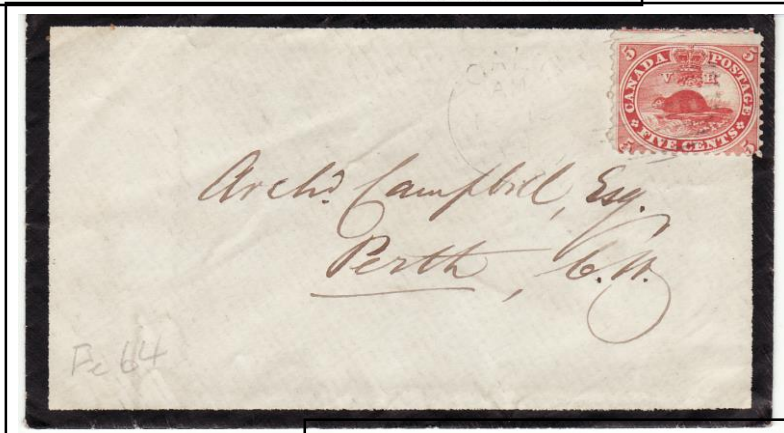 5 5
CANADA POSTAGE
V R
FIVE CENTS
5 5
AM
Archd. Campbell, Esq.
Perth, C.W.
Fe 64